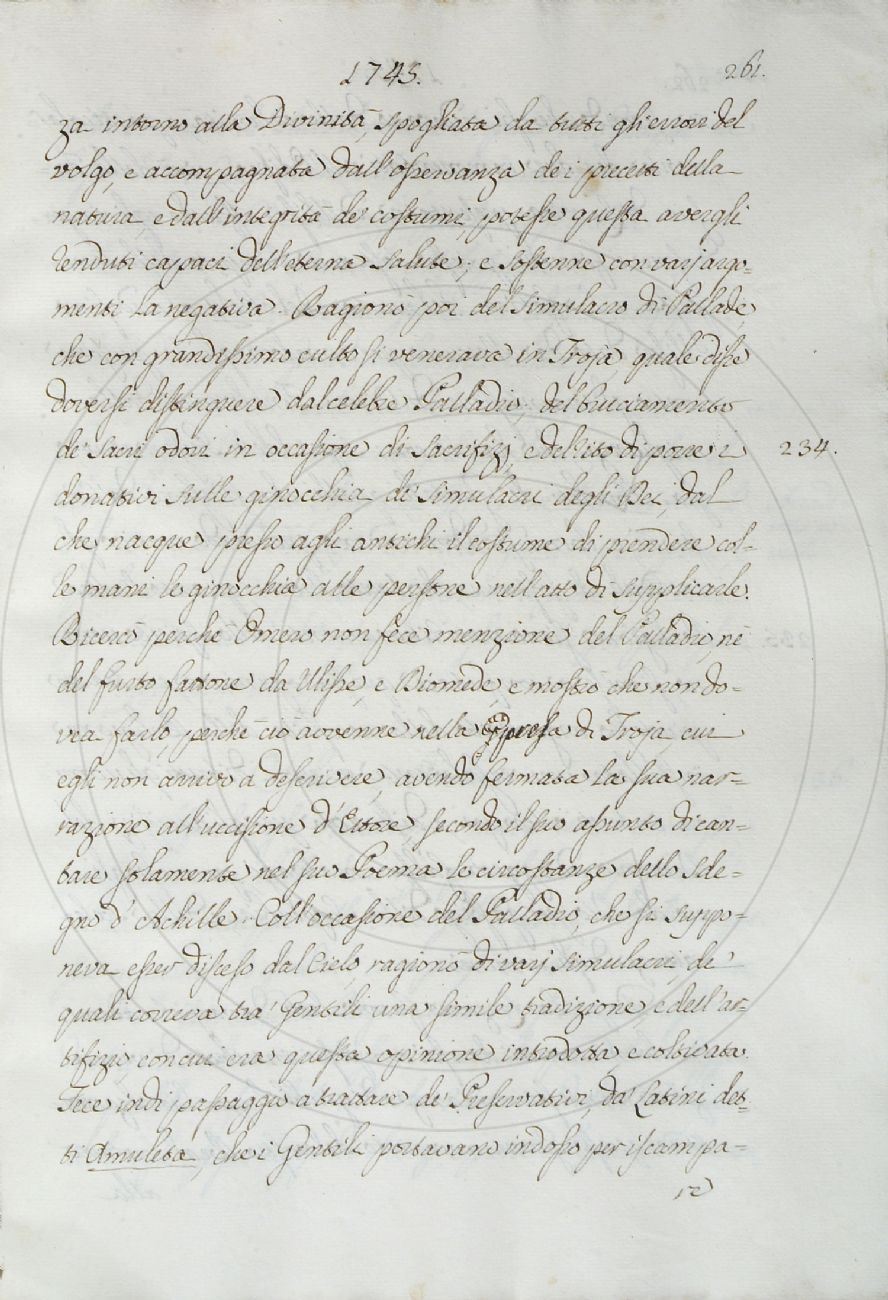 1745.
261.
za intorno alla Divinità, spogliata da tutti gli errori del
volgo, e accompagnata dall'osservanza dei precetti della
natura, e dall'integrità de' costumi, potesse questa avergli
renduti capaci dell'eterna salute; e sostenne con varj argo=
menti la negativa. Ragionò poi del simulacro di Pallade,
che con grandissimo culto si venerava in Troja, quale disse
doversi distinguere dal celebre Palladio; del bruciamento
de' sacri odori in occasione di sacrifizj, e del rito di porre i
234.
donativi sulle ginocchia de' simulacri degli Dei, dal
che nacque presso agli antichi il costume di prendere col=
le mani le ginocchia alle persone nell'atto di supplicarle.
Ricercò perchè Omero non fece menzione del Palladio, nè
del furto fattone da Ulisse, e Diomede, e mostrò che non do=
vea farlo, perchè ciò avvenne nella presa di Troja, cui
egli non arrivò a descrivere, avendo fermata la sua nar=
razione all'uccisione d'Ettore secondo il suo assunto di can=
tare solamente nel suo Poema le circostanze dello sde=
gno d'Achille. Coll'occasione del Palladio, che si suppo=
neva esser disceso dal Cielo, ragionò di varj simulacri, de'
quali correva tra' Gentili una simile tradizione, e dell'ar=
tifizio, con cui era questa opinione introdotta, e coltivata.
Fece indi passaggio a trattare de' Preservativi, da' Latini det=
ti Amuleta, che i Gentili portavano indosso per iscampa=
re